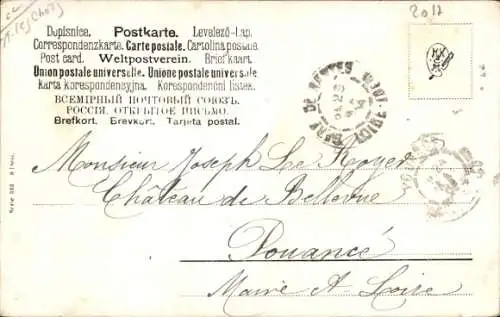 2017
Dopisnice. Postkarte. Levelező-Lap.
Correspondenzkarte. Carte postale. Cartolina postale.
Post card. Weltpostverein. Briefkaart.
Union postale universelle. Unione postale universale
Karta korespondencyjna. Korespondenční listek.
ВСЕМІРНЫЙ ПОЧТОВЫЙ СОЮЗЪ.
РОССІЯ. ОТКРЫТОЕ ПИСЬМО.
Brefkort. Brevkort. Tarjeta postal.
Monsieur Joseph Le Royer
Château de Bellevue
Pouancé
Maine & Loire